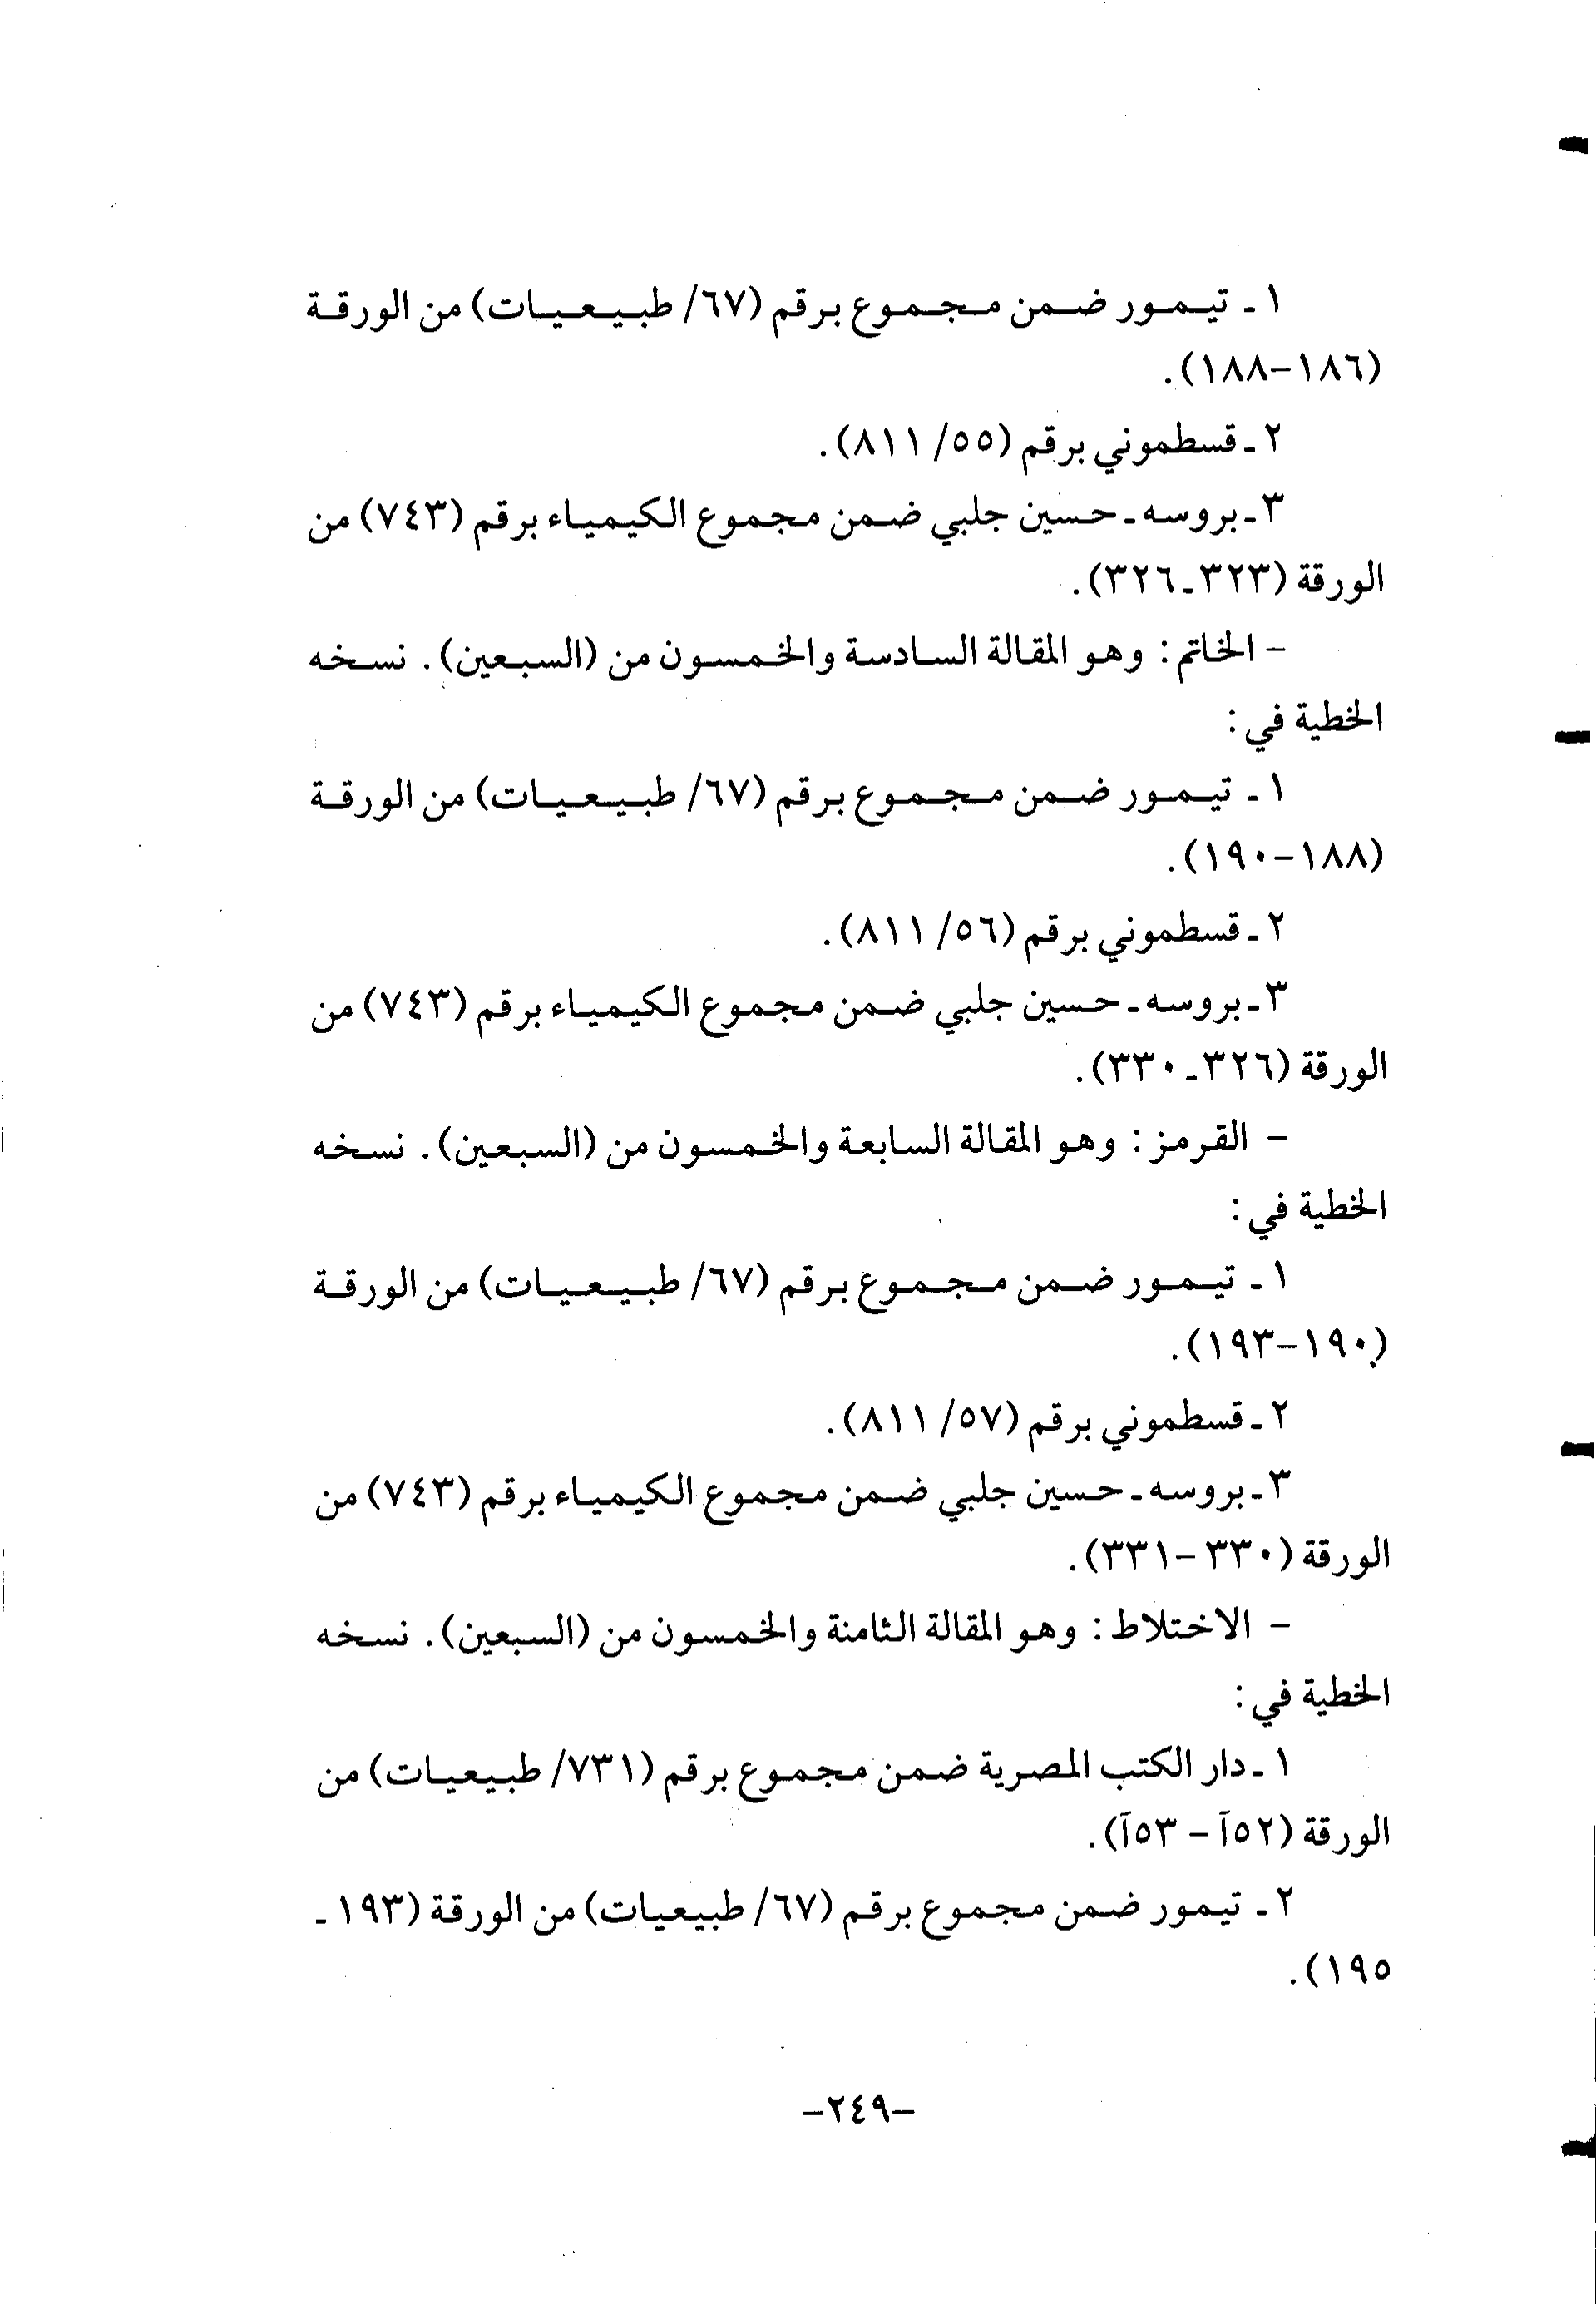 ١ - تيمور ضمن مجموع برقم (٦٧/ طبيعيات) من الورقة
(١٨٦-١٨٨).
٢ - قسطموني برقم (٥٥/ ٨١١).
٣ - بروسه - حسين جلبي ضمن مجموع الكيمياء برقم (٧٤٣) من
الورقة (٣٢٣ - ٣٢٦).
- الخاتم: وهو المقالة السادسة والخمسون من (السبعين). نسخه
الخطية في:
١ - تيمور ضمن مجموع برقم (٦٧/ طبيعيات) من الورقة
(١٨٨-١٩٠).
٢ - قسطموني برقم (٥٦/ ٨١١).
٣ - بروسه - حسين جلبي ضمن مجموع الكيمياء برقم (٧٤٣) من
الورقة (٣٢٦ - ٣٣٠).
- القرمز: وهو المقالة السابعة والخمسون من (السبعين). نسخه
الخطية في:
١ - تيمور ضمن مجموع برقم (٦٧/ طبيعيات) من الورقة
(١٩٠-١٩٣).
٢ - قسطموني برقم (٥٧/ ٨١١).
٣ - بروسه - حسين جلبي ضمن مجموع الكيمياء برقم (٧٤٣) من
الورقة (٣٣٠ - ٣٣١).
- الاختلاط: وهو المقالة الثامنة والخمسون من (السبعين). نسخه
الخطية في:
١ - دار الكتب المصرية ضمن مجموع برقم (٧٣١/ طبيعيات) من
الورقة (٥٢آ - ٥٣آ).
٢ - تيمور ضمن مجموع برقم (٦٧/ طبيعيات) من الورقة (١٩٣ -
١٩٥).
-٢٤٩-